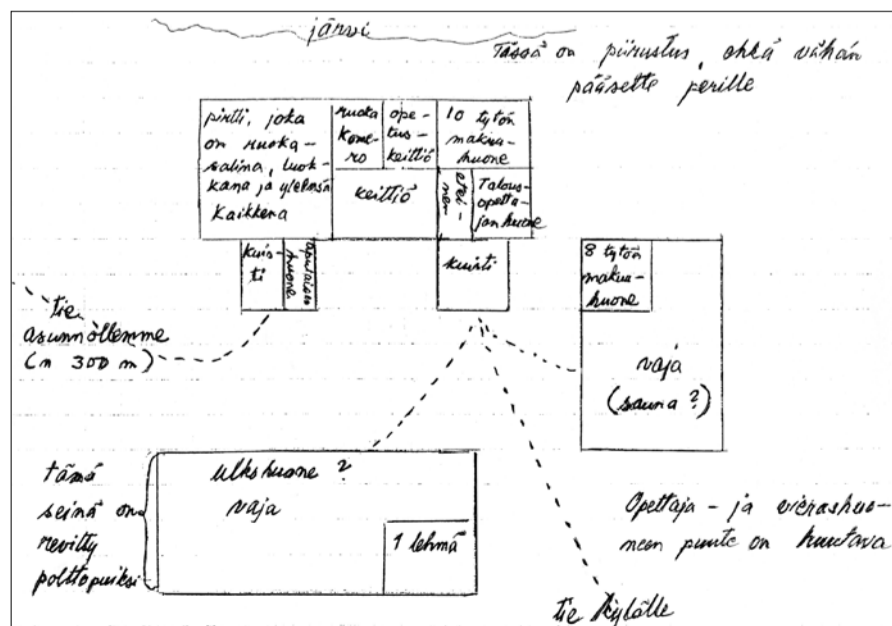 järvi
Tässä on piirustus, ehkä vähän
pääsette perille
pirtti, joka
on ruoka-
salina, luok-
kana ja yleensä
kaikkena
ruoka
kome-
ro
ope-
tus-
keittiö
10 tytön
makuu-
huone
keittiö
etei-
nen
Talous-
opetta-
jan huone
kuis-
ti
apulaisen
huone
kuisti
8 tytön
makuu-
huone
vaja
(sauna ?)
tie
asunnollemme
(n 300 m)
tämä
seinä on
revitty
polttopuiksi
ulkohuone ?
vaja
1 lehmä
Opettaja- ja vierashuo-
neen puute on huutava
tie kylälle